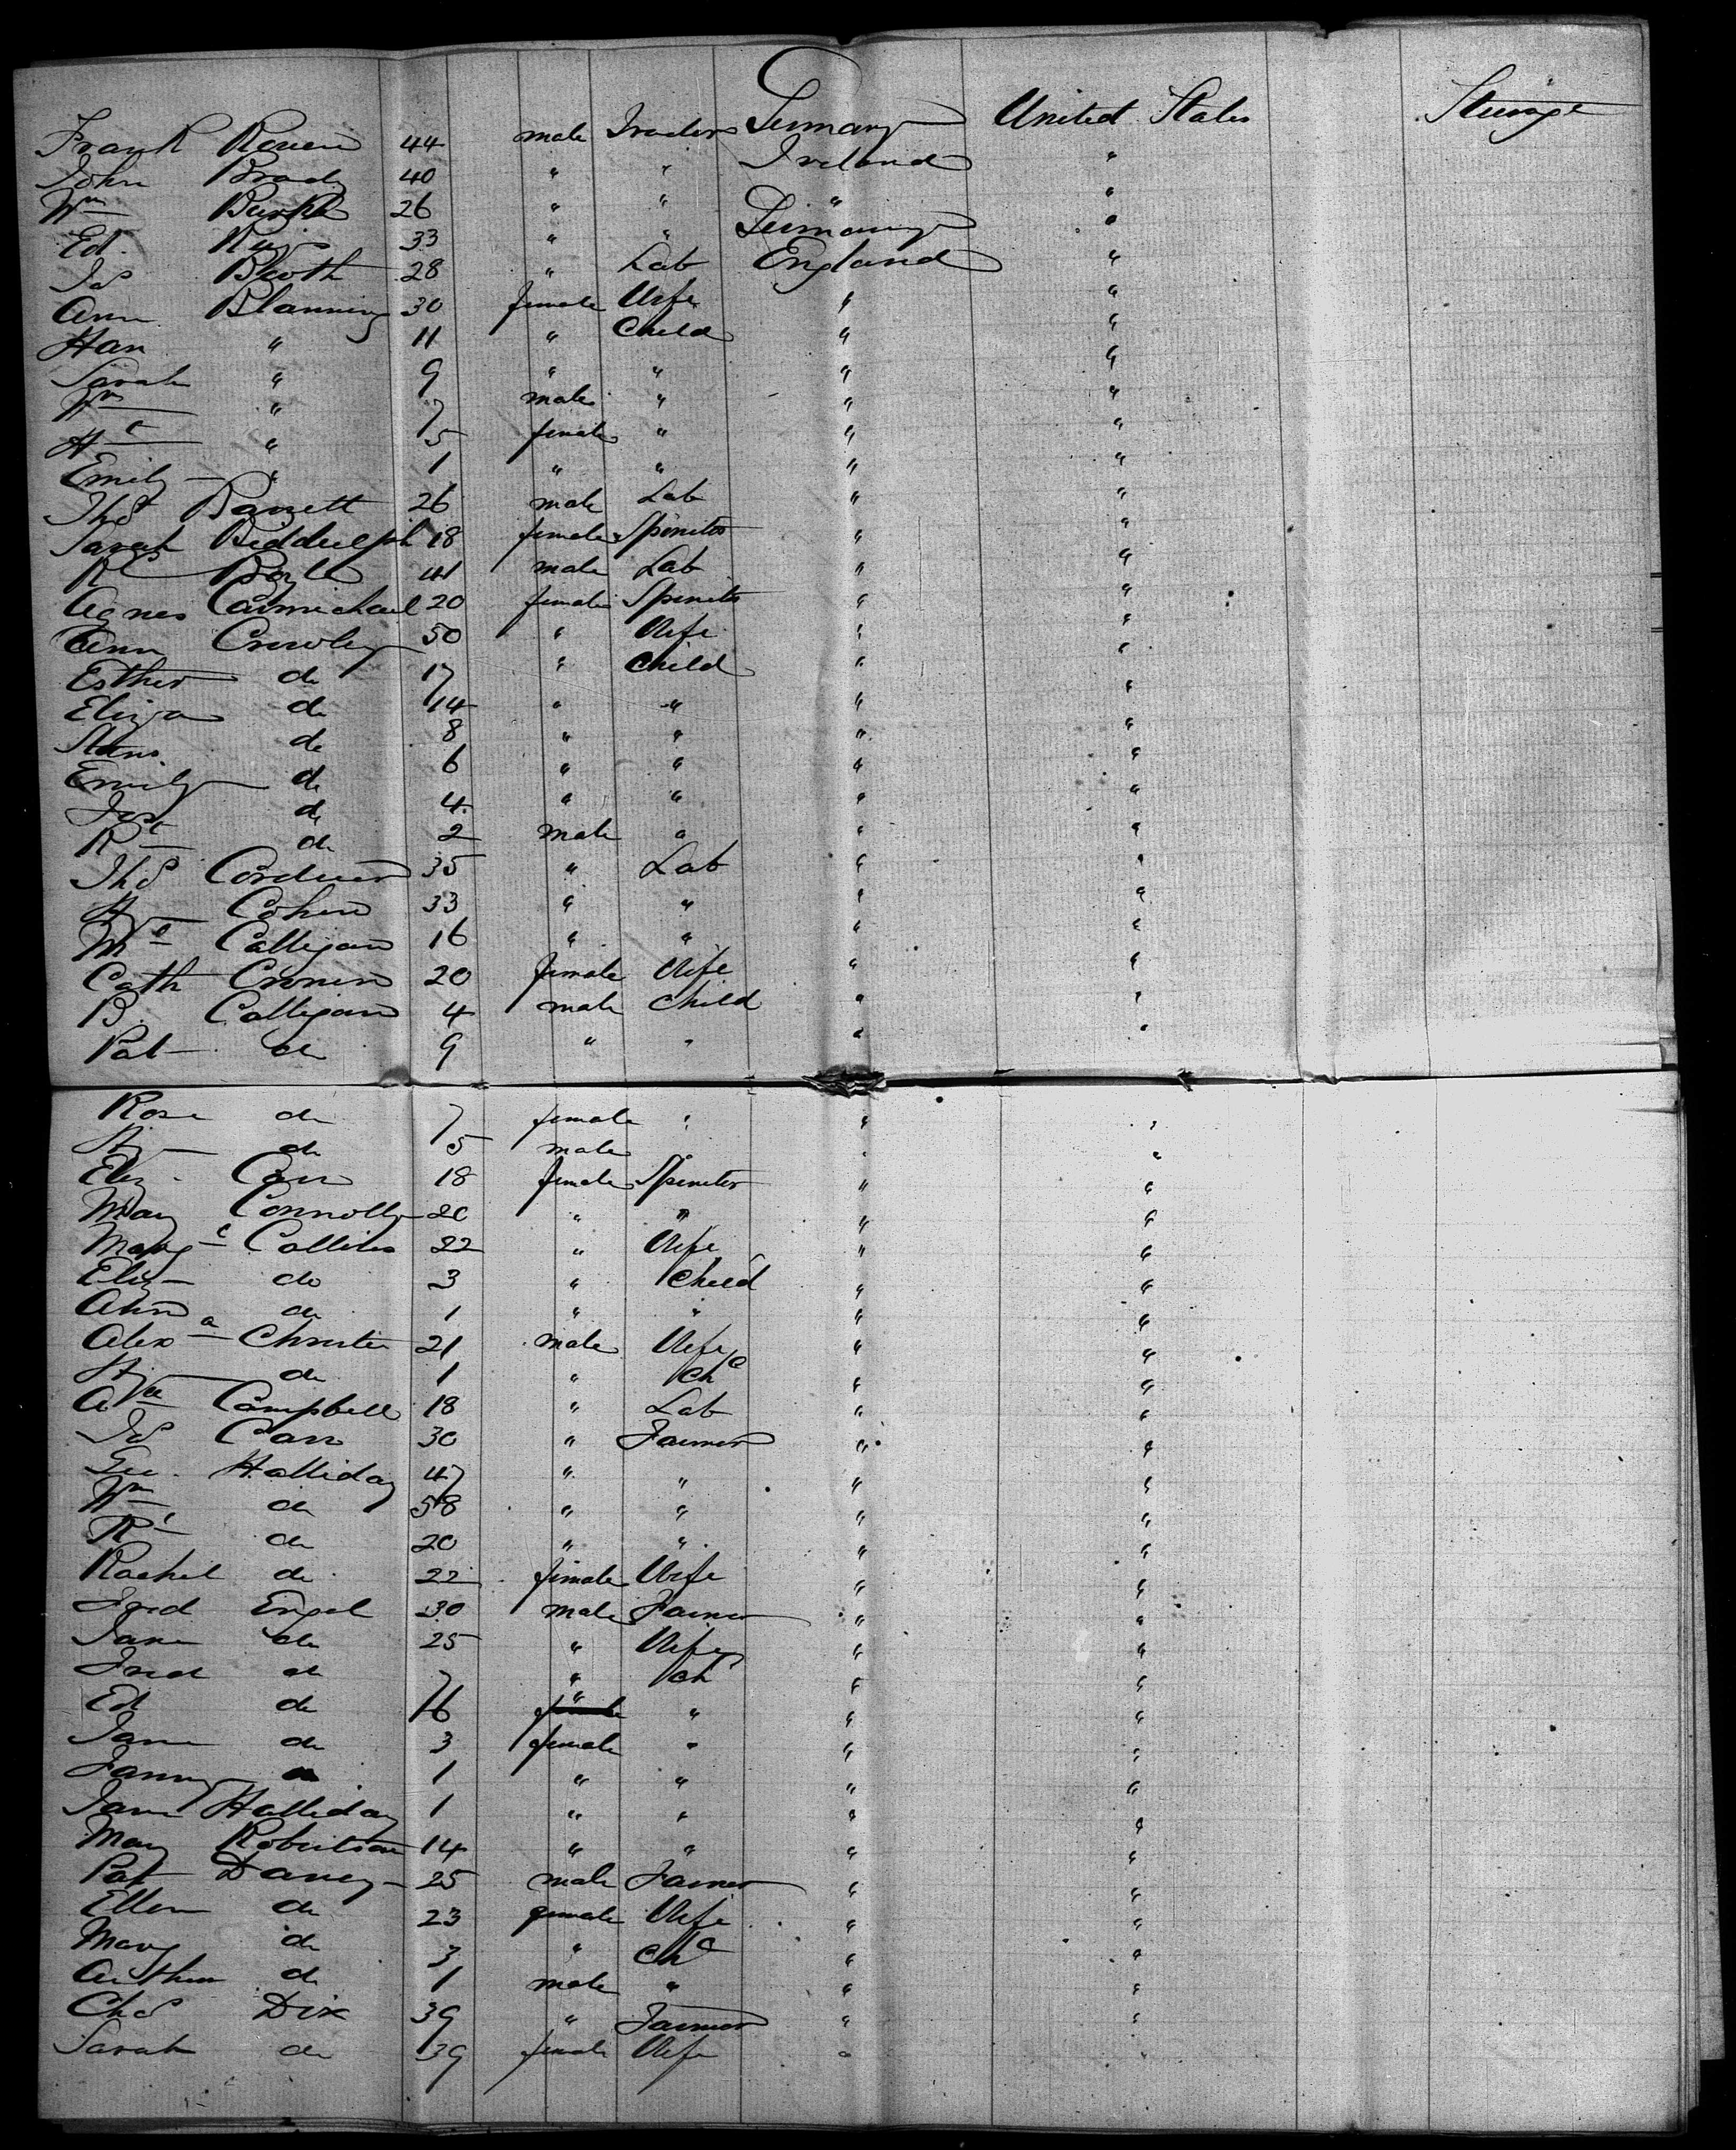 Frank 44 male Traders Germany United States Steerage
John Brady 40 " " Ireland "
Wm Burke 26 " " " "
Ed. 33 " " Germany "
Js Booth 28 " Lab England "
Ann Blanning 30 female Wife " "
Han " 11 " Child " "
Sarah " 9 " " " "
Wm " 7 male " " "
Ht " 5 female " " "
Emily " 1 " " " "
Ths Barrett 26 male Lab " "
Sarah Biddulph 18 female Spinster " "
Rd Boyle 41 male Lab " "
Agnes Carmichael 20 female Spinster " "
Ann Crowley 50 " Wife " "
Esther do 17 " Child " "
Eliza do 14 " " " "
do 8 " " " "
Emily do 6 " " " "
do 4 " " " "
Rt do 2 male " " "
Ths Cordner 35 " Lab " "
Hy Cohen 33 " " " "
Ml Colligan 16 " " " "
Cath Cronin 20 female Wife " "
B. Colligan 4 male Child " "
Pat do 9 " " " "
Rose do 7 female " " "
Hy do 5 male " " "
Eliz. Carr 18 female Spinster " "
Mary Connolly 20 " " " "
Margt Colliter 22 " Wife " "
Eliz do 3 " Child " "
Ann do 1 " " " "
Alexa Christie 21 male Wife " "
Hy do 1 " Chd " "
Campbell 18 " Lab " "
Js Carr 30 " Farmer " "
Geo. Halliday 47 " " " "
Wm do 58 " " " "
Rt do 20 " " " "
Rachel do 22 female Wife " "
Fred Engel 30 male Farmer " "
Jane do 25 " Wife " "
Fred do 7 " Chd " "
Ed do 6 " " " "
Jane do 3 female " " "
Fanny do 1 " " " "
Jane Halliday 1 " " " "
Mary Robertson 14 " " " "
Pat Darcy 25 male Farmer " "
Ellen do 23 female Wife " "
Mary do 3 " Chd " "
Arthur do 1 male " " "
Chs Dix 39 " Farmer " "
Sarah do 39 female Wife "